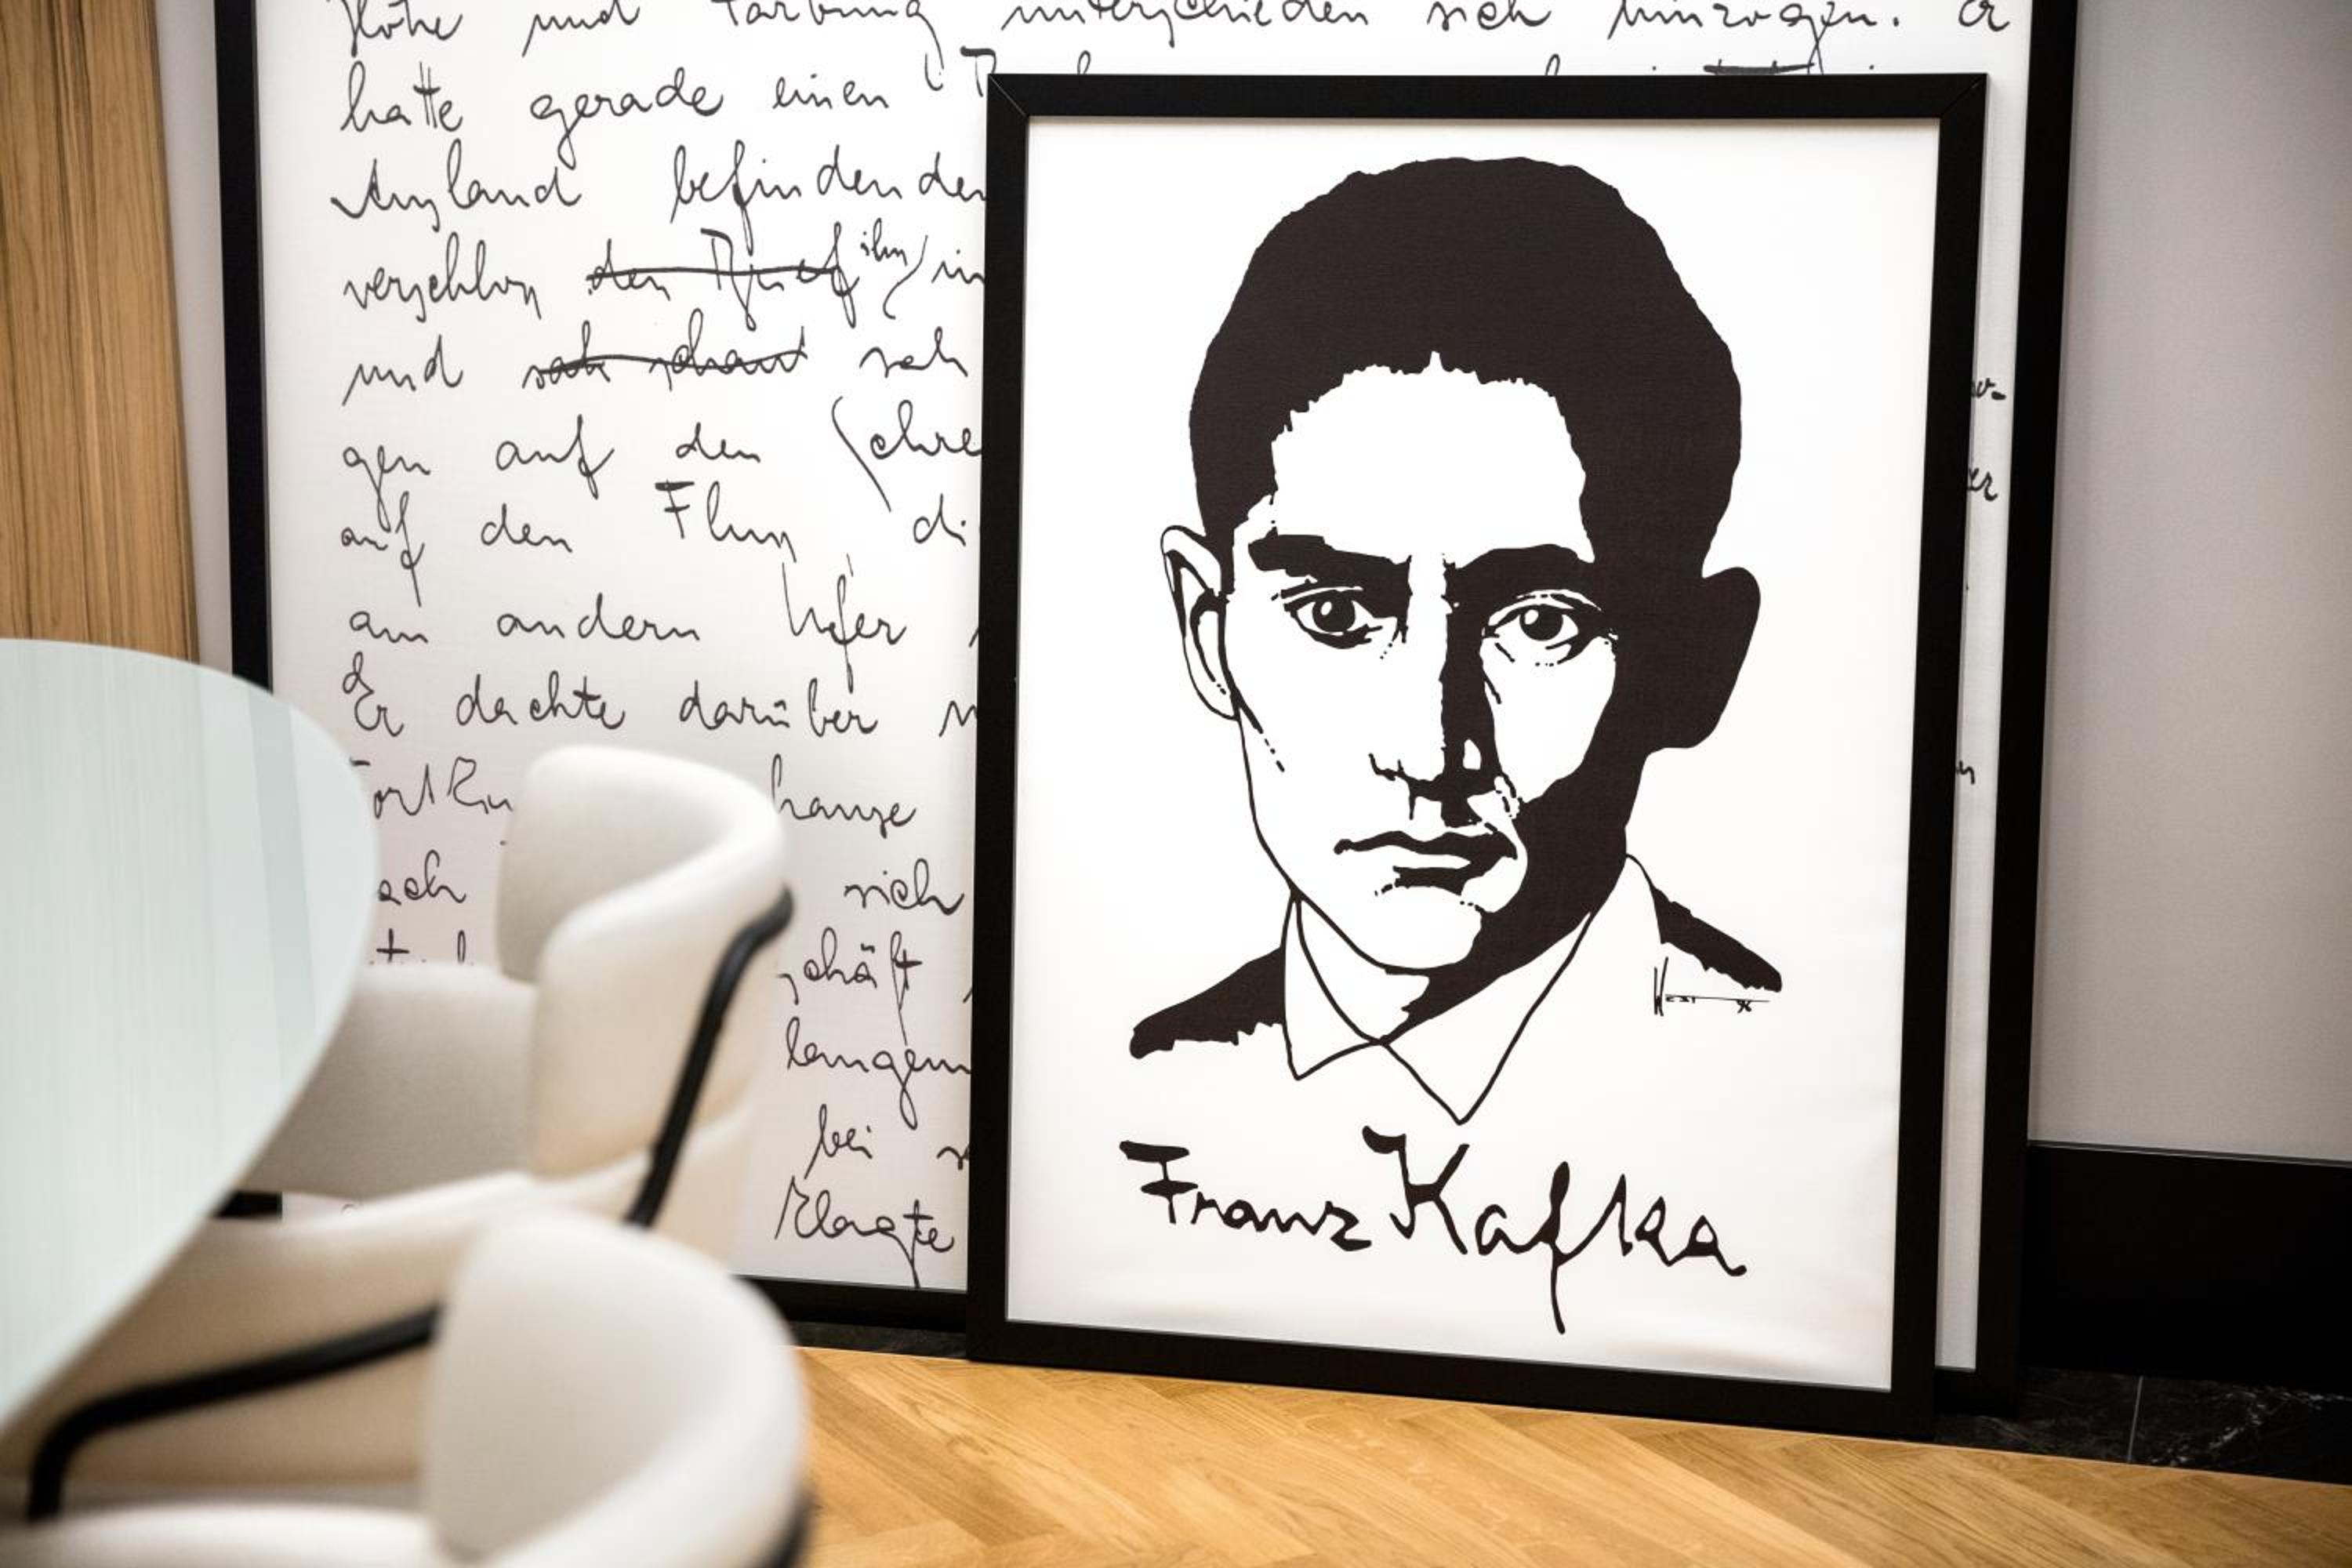 Höhe und Färbung unterschieden sich hinzogen. Er
hatte gerade einen
Ausland befindenden
verschloß den Brief ihn in
und sah schaut sah
gen auf den Schre
auf den Fluß, di
am andern Ufer
Er dachte darüber
hause
sich
schäft
langem
bei
klagte
er
Franz Kafka